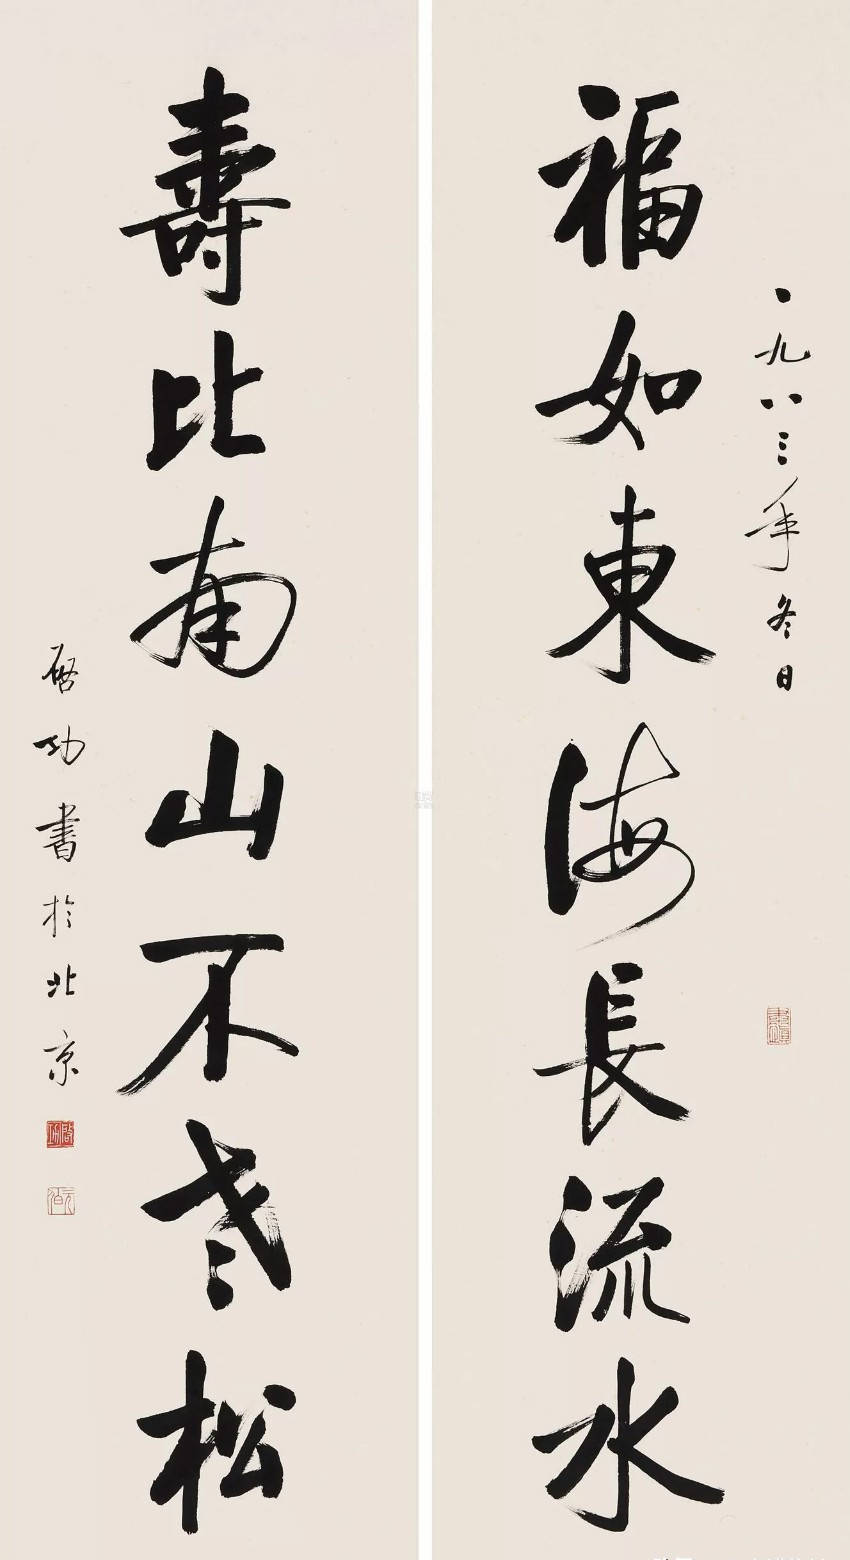 一九八三年冬日
福如東海長流水
壽比南山不老松
啓功書於北京
啓功
元白